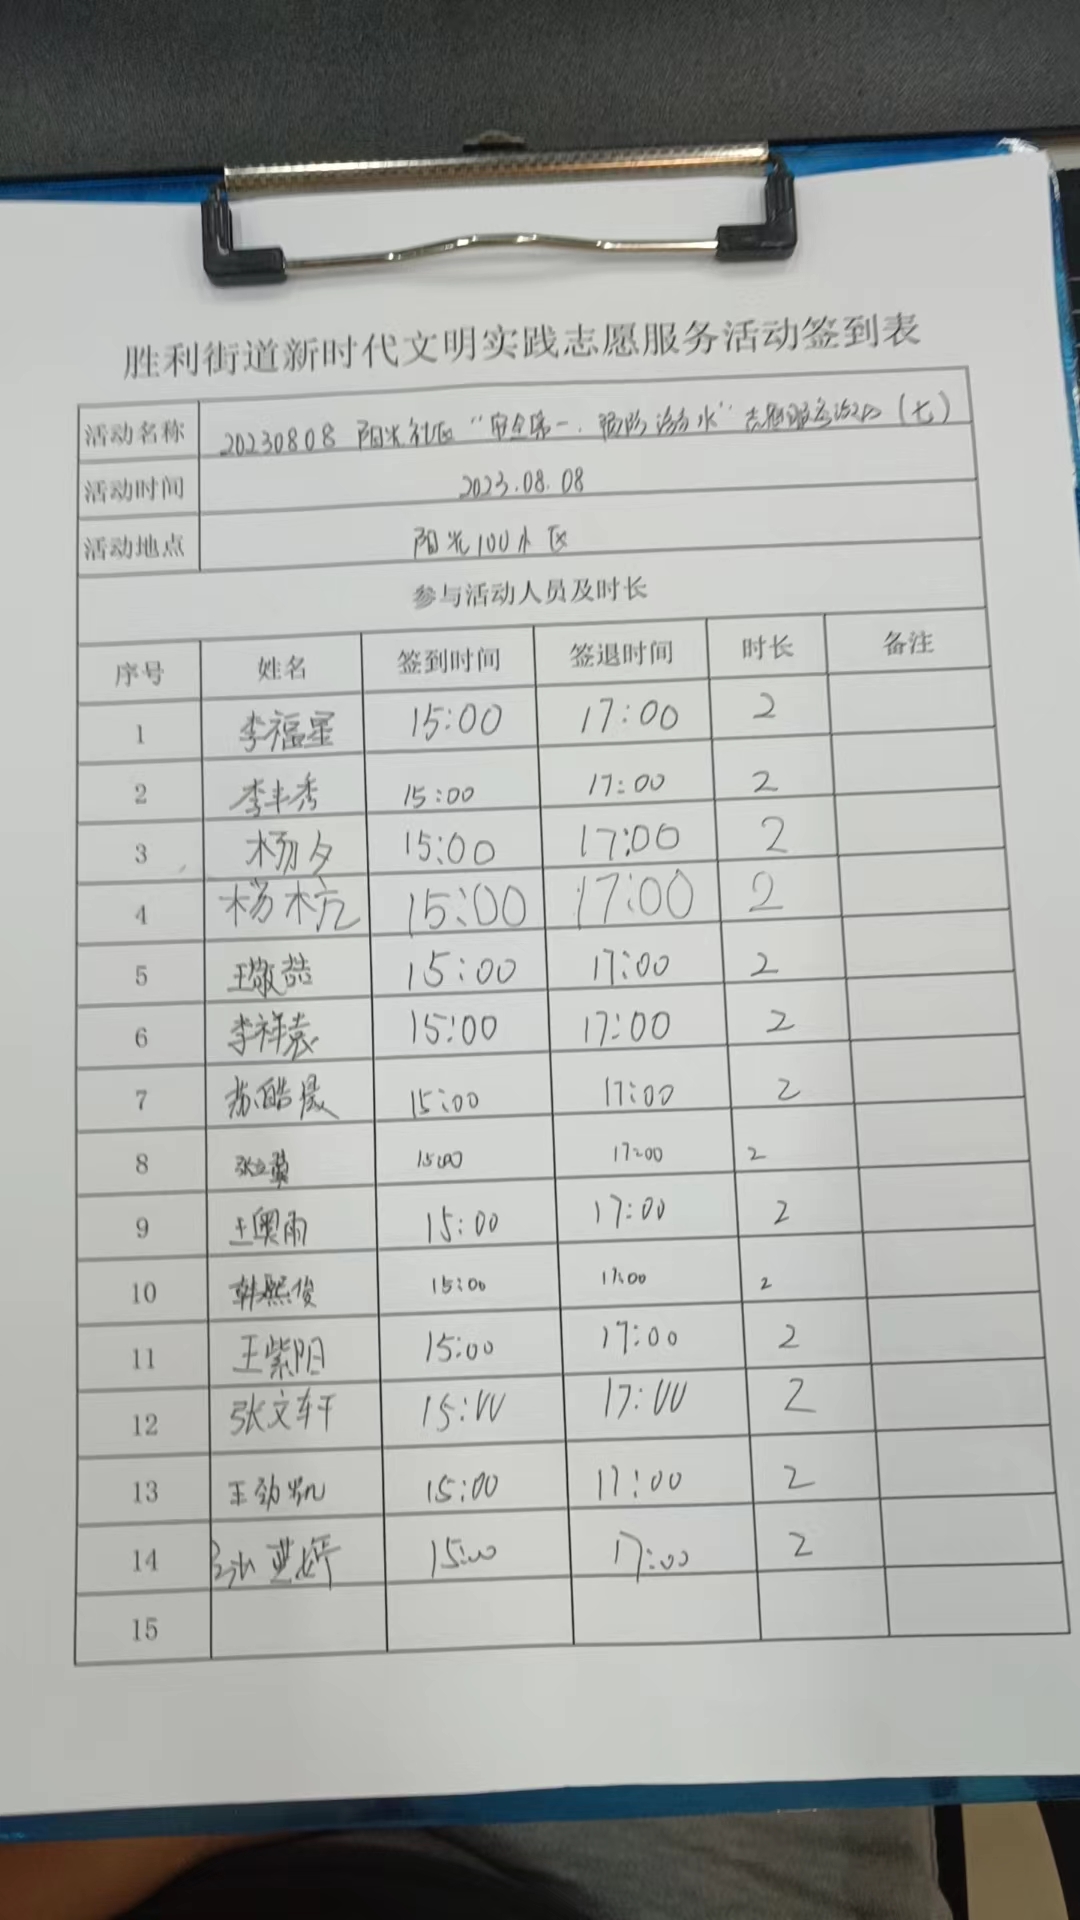 胜利街道新时代文明实践志愿服务活动签到表
活动名称 20230808 阳光社区“安全第一，预防溺水”志愿服务活动（七）
活动时间 2023.08.08
活动地点 阳光100小区
参与活动人员及时长
序号 姓名 签到时间 签退时间 时长 备注
1 李福星 15:00 17:00 2
2 李丰秀 15:00 17:00 2
3 杨夕 15:00 17:00 2
4 杨杭 15:00 17:00 2
5 王敬喆 15:00 17:00 2
6 李祥袁 15:00 17:00 2
7 苏皓晟 15:00 17:00 2
8 15:00 17:00 2
9 王奥雨 15:00 17:00 2
10 韩熙俊 15:00 17:00 2
11 王紫阳 15:00 17:00 2
12 张文轩 15:00 17:00 2
13 王劲凯 15:00 17:00 2
14 15:00 17:00 2
15